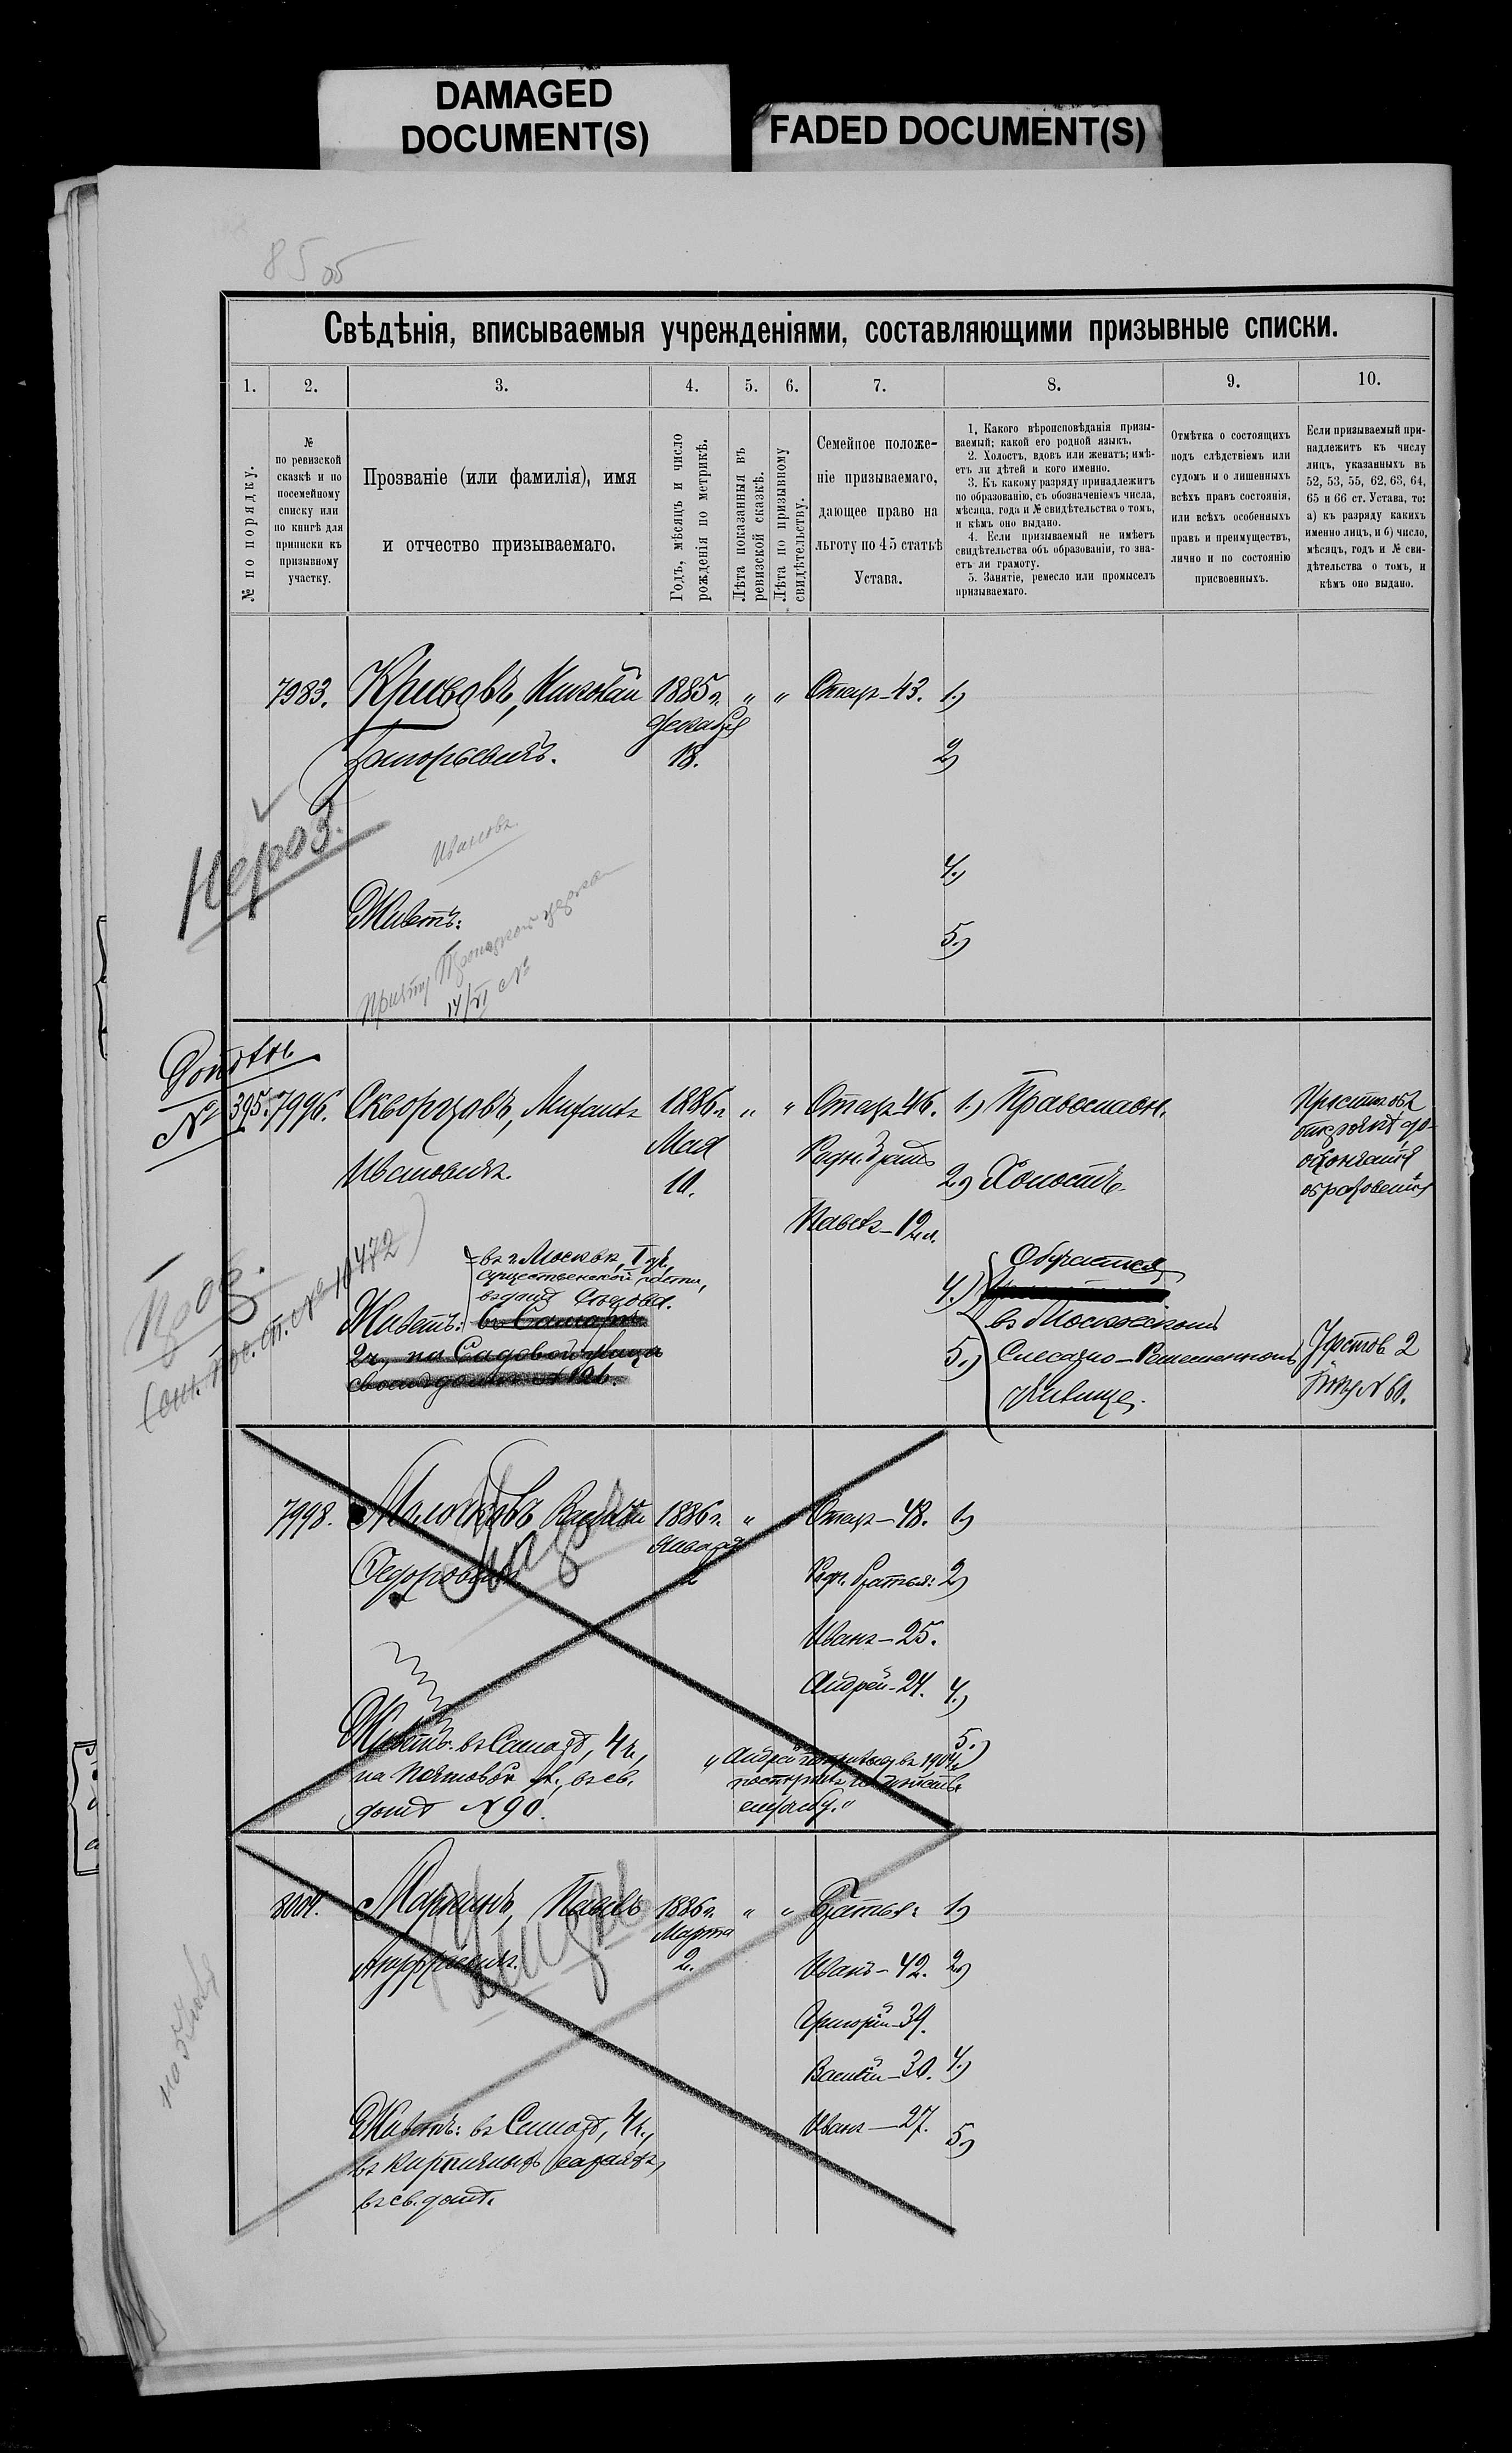 DAMAGED
DOCUMENT(S)
FADED DOCUMENT(S)
85
Свѣдѣнія, вписываемыя учрежденіями, составляющими призывные списки.
1.
2.
3.
4.
5.
6.
7.
8.
9.
10.
№ по порядку.
№
по ревизской
сказкѣ и по
посемейному
списку или
по книгѣ для
приписки къ
призывному
участку.
Прозваніе (или фамилія), имя
и отчество призываемаго.
Годъ, мѣсяцъ и число
рожденія по метрикѣ.
Лѣта показанныя въ
ревизской сказкѣ.
Лѣта по призывному
свидѣтельству.
Семейное положе-
ніе призываемаго,
дающее право на
льготу по 45 статьѣ
Устава.
1. Какого вѣроисповѣданія призы-
ваемый; какой его родной языкъ.
2. Холостъ, вдовъ или женатъ; имѣ-
етъ ли дѣтей и кого именно.
3. Къ какому разряду принадлежитъ
по образованію, съ обозначеніемъ числа,
мѣсяца, года и № свидѣтельства о томъ,
и кѣмъ оно выдано.
4. Если призываемый не имѣетъ
свидѣтельства объ образованіи, то зна-
етъ ли грамоту.
5. Занятіе, ремесло или промыселъ
призываемаго.
Отмѣтка о состоящихъ
подъ слѣдствіемъ или
судомъ и о лишенныхъ
всѣхъ правъ состоянія,
или всѣхъ особенныхъ
правъ и преимуществъ,
лично и по состоянію
присвоенныхъ.
Если призываемый при-
надлежитъ къ числу
лицъ, указанныхъ въ
52, 53, 55, 62, 63, 64,
65 и 66 ст. Устава, то:
а) къ разряду какихъ
именно лицъ, и б) число,
мѣсяцъ, годъ и № сви-
дѣтельства о томъ, и
кѣмъ оно выдано.
7983. Кривовъ, Николай 1885 г. " " Отецъ—43. 1.)
Григорьевичъ. декабря 18. 2)
Ивановъ.
4.)
Живетъ:
5.)
14/VI
№ 395. 7996. Скворцовъ, Михаилъ 1886 г. " " Отецъ 46. 1.) Православн.
Ивановичъ. Мая 10. Родн. братъ 2.) Холостъ.
Павелъ—12 л.
до
окончанія
образованія
въ г. Москвѣ, I уч.,
части,
въ домѣ
Живетъ: въ Самарѣ
2ч., на Садовой улицѣ
4.) Обучается
въ Московскомъ
5.) Слесарно-Ремесленномъ
училище.
№ 60.
7998. Молотковъ Василій 1886 г. " Отецъ—48. 1)
Федоровичъ января 2 Род. братья: 2)
Иванъ—25.
Андрей—24. 4.)
5.)
Живетъ: въ Самарѣ, 4ч.,
на Полевой ул., въ св.
домѣ № 90.
"Андрей по призыву въ 1904 г.
службу."
8004. Маркинъ, Павелъ 1886 г. " " Братья: 1)
Марта 2. Иванъ—42. 2)
Григорій—39.
Василій—30. 4.)
Иванъ—27. 5)
Живетъ: въ Самарѣ, 4ч.,
въ кирпичныхъ сараяхъ,
въ св. домѣ.